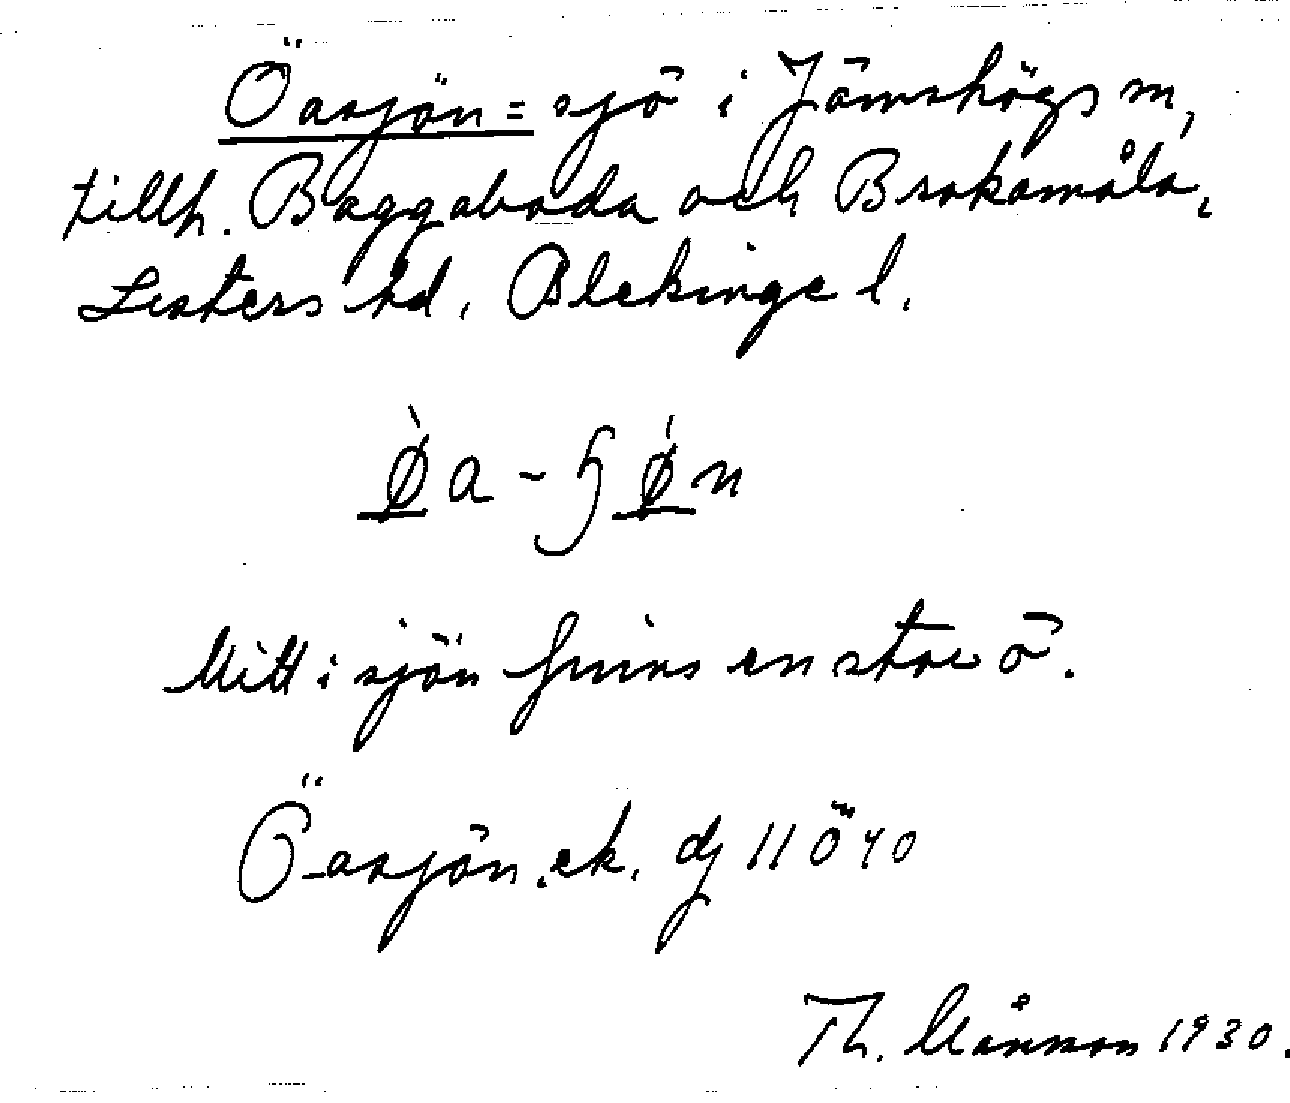 Öasjön = sjö i Jämshögs sn,
tillh. Baggaboda och Brokamåla,
Listers hd, Blekinge l.
Ø̀a-ɧǿn
Mitt i sjön finns en stor ö.
Ö-asjön. ek. dj 11 Ö 40
Th. Månsson 1930.